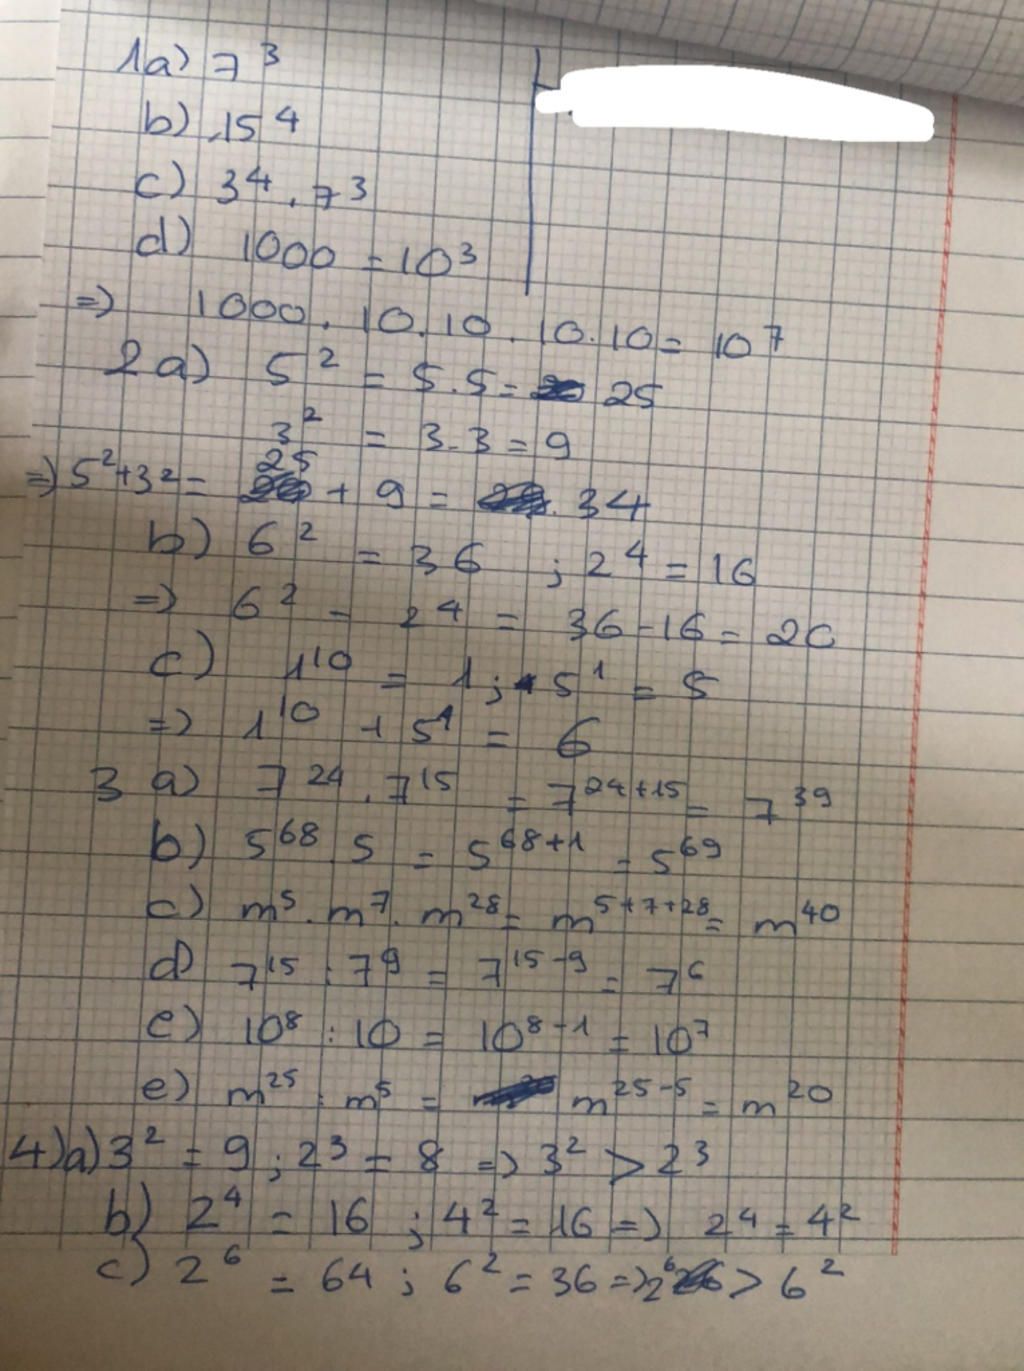 1a) 7³
b) 15⁴
c) 3⁴ . 7³
d) 1000 = 10³
=) 1000 . 10 . 10 . 10 . 10 = 10⁷
2 a) 5² = 5 . 5 = 25
3² = 3 . 3 = 9
=) 5² + 3² = 25 + 9 = 34
b) 6² = 36 ; 2⁴ = 16
=) 6² - 2⁴ = 36 - 16 = 20
c) 1¹⁰ = 1 ; 5¹ = 5
=) 1¹⁰ + 5¹ = 6
3 a) 7²⁴ . 7¹⁵ = 7²⁴⁺¹⁵ = 7³⁹
b) 5⁶⁸ . 5 = 5⁶⁸⁺¹ = 5⁶⁹
c) m⁵ . m⁷ . m²⁸ = m⁵⁺⁷⁺²⁸ = m⁴⁰
d) 7¹⁵ : 7⁹ = 7¹⁵⁻⁹ = 7⁶
e) 10⁸ : 10 = 10⁸⁻¹ = 10⁷
e) m²⁵ : m⁵ = m²⁵⁻⁵ = m²⁰
4) a) 3² = 9 ; 2³ = 8 =) 3² > 2³
b) 2⁴ = 16 ; 4² = 16 =) 2⁴ = 4²
c) 2⁶ = 64 ; 6² = 36 =) 2⁶ > 6²